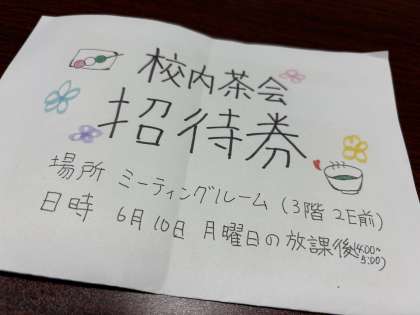 校内茶会
招待券
場所 ミーティングルーム (3階 2E前)
日時 6月10日 月曜日の放課後(4:00~5:00)